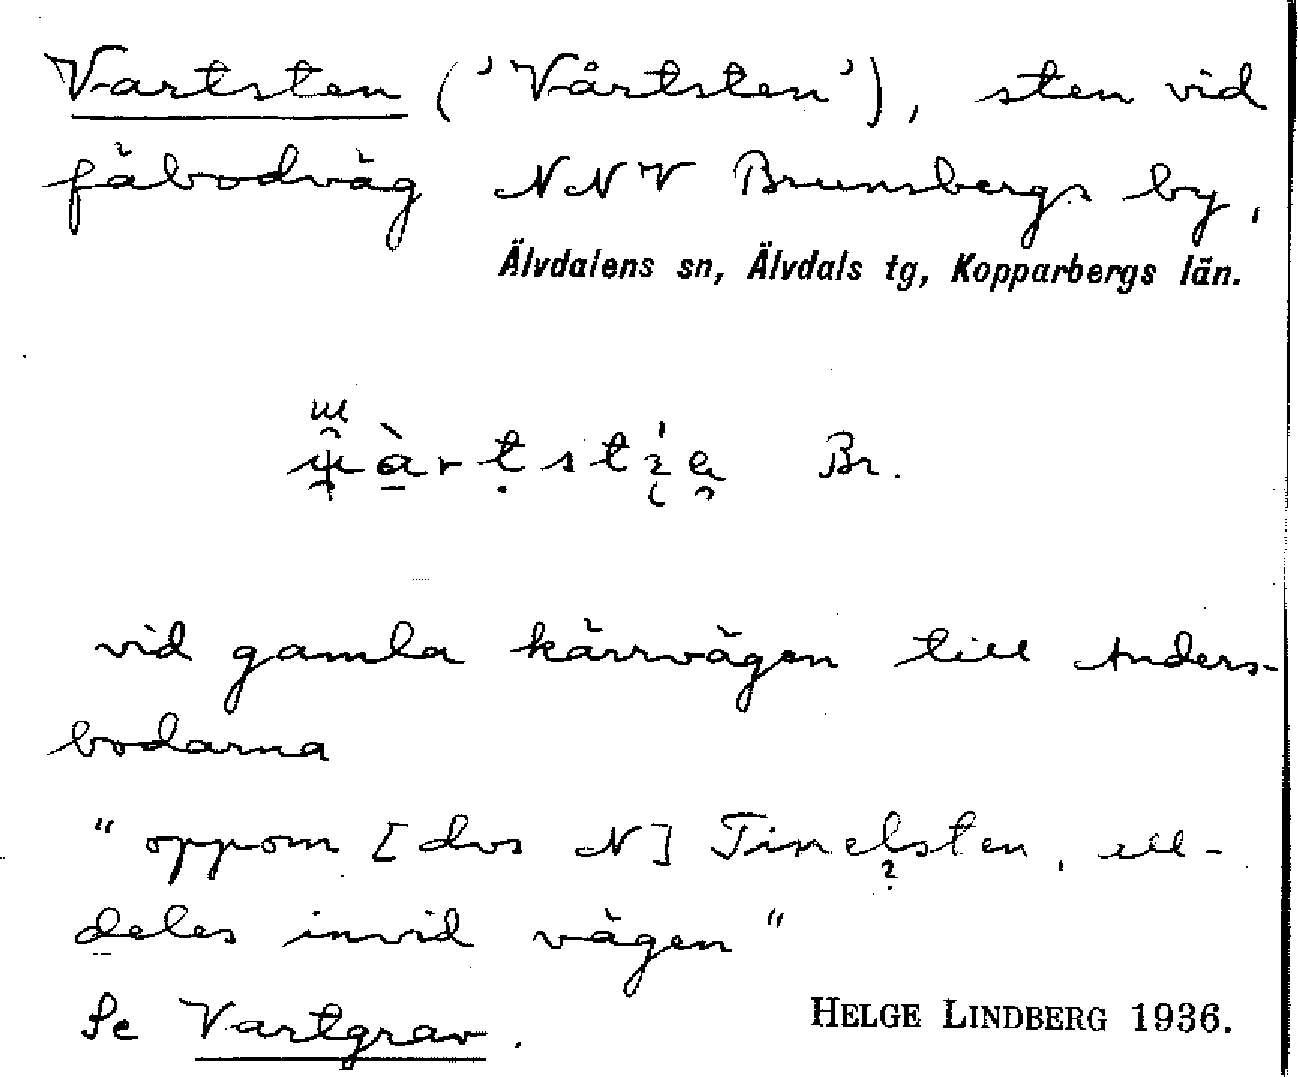 Vartsten ('Vårtsten'), sten vid
fäbodväg NNV Brunsbergs by,
Älvdalens sn, Älvdals tg, Kopparbergs län.
Br.
vid gamla kärrvägen till Anders-
bodarna
"oppom [dvs N] Tinelsten, ell-
?
deles invid vägen"
Se Vartgrav.
HELGE LINDBERG 1936.